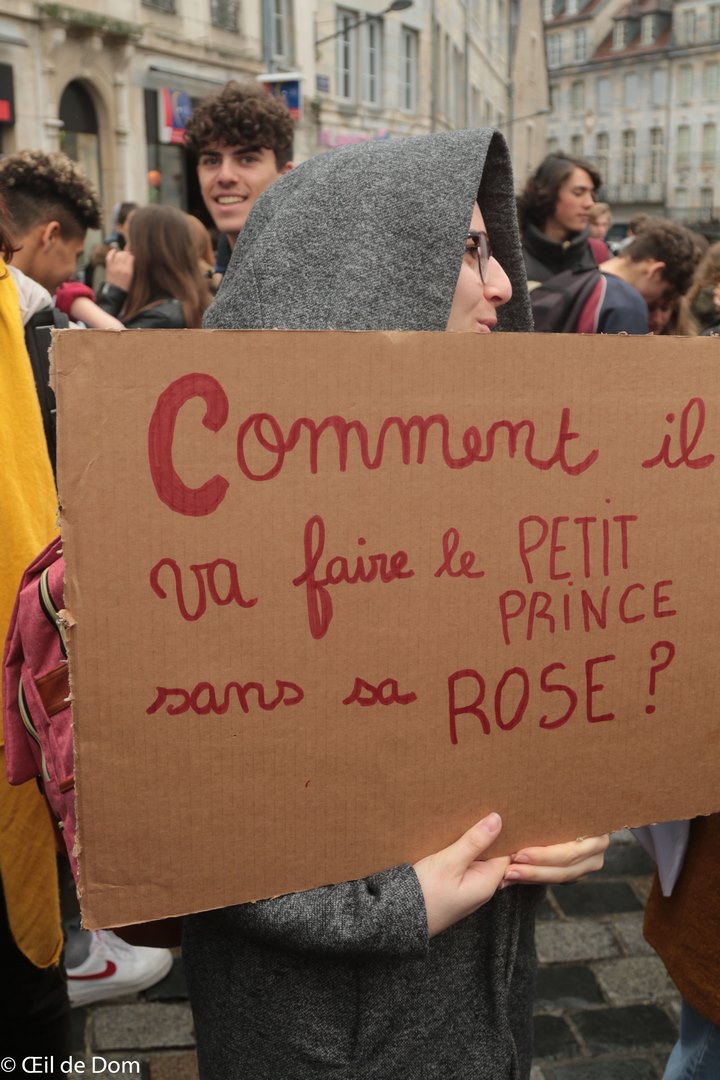 Comment il
va faire le PETIT
PRINCE
sans sa ROSE ?
© Œil de Dom